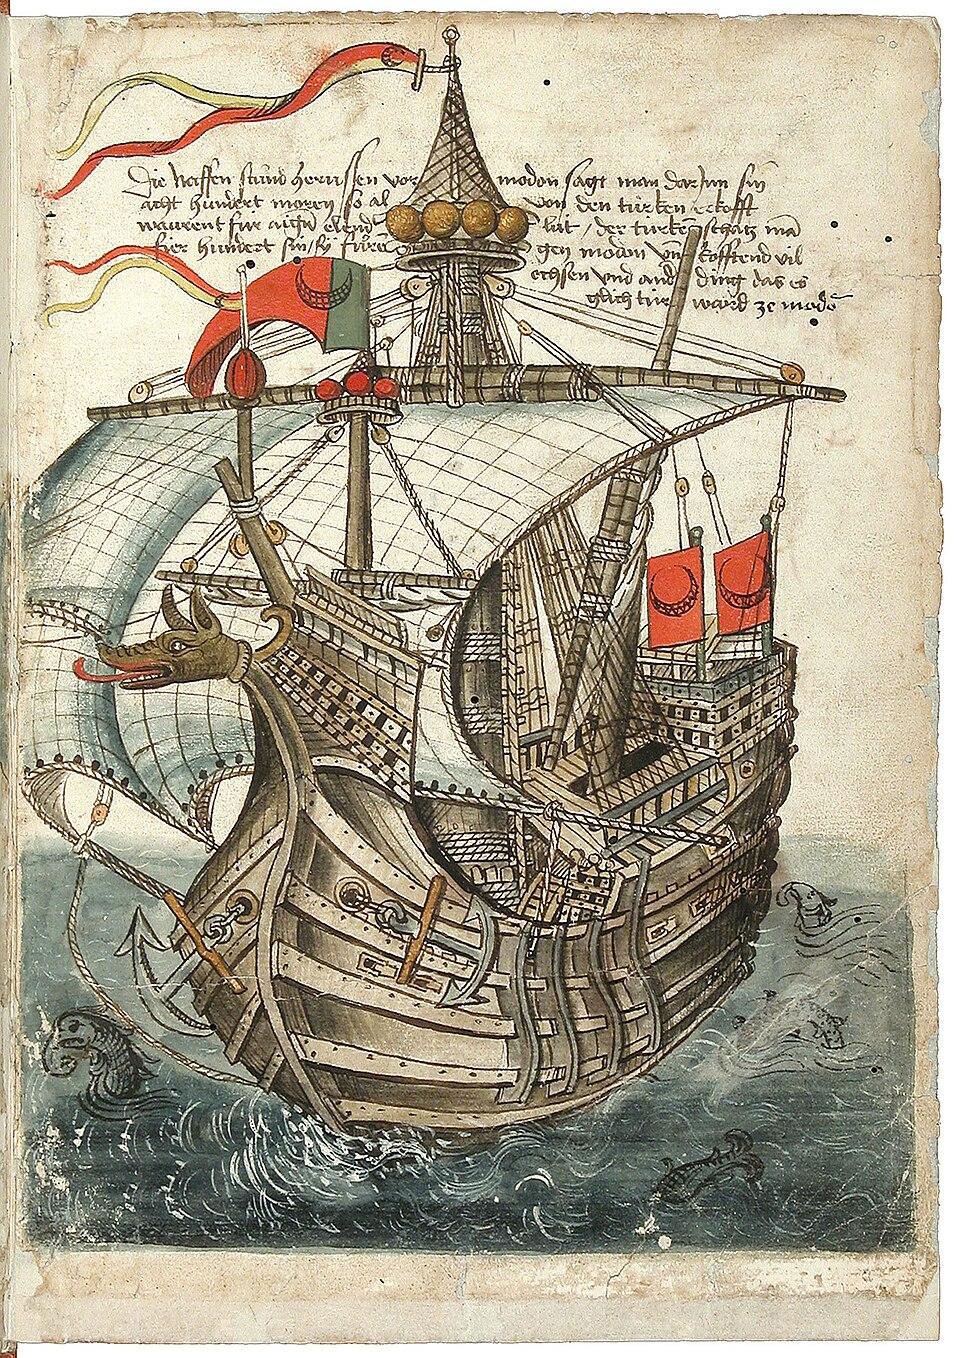 Die naffen stund herussen vor modon sagt man dar Inn sin
acht hundert moren so al von den türken erkofft
warent für aigñ lüt / der türken schatz mã
fier hundert sin / sy füren gen modon vnd kofftend vil
ochsen vnd and ding das es
tür ward ze modõ